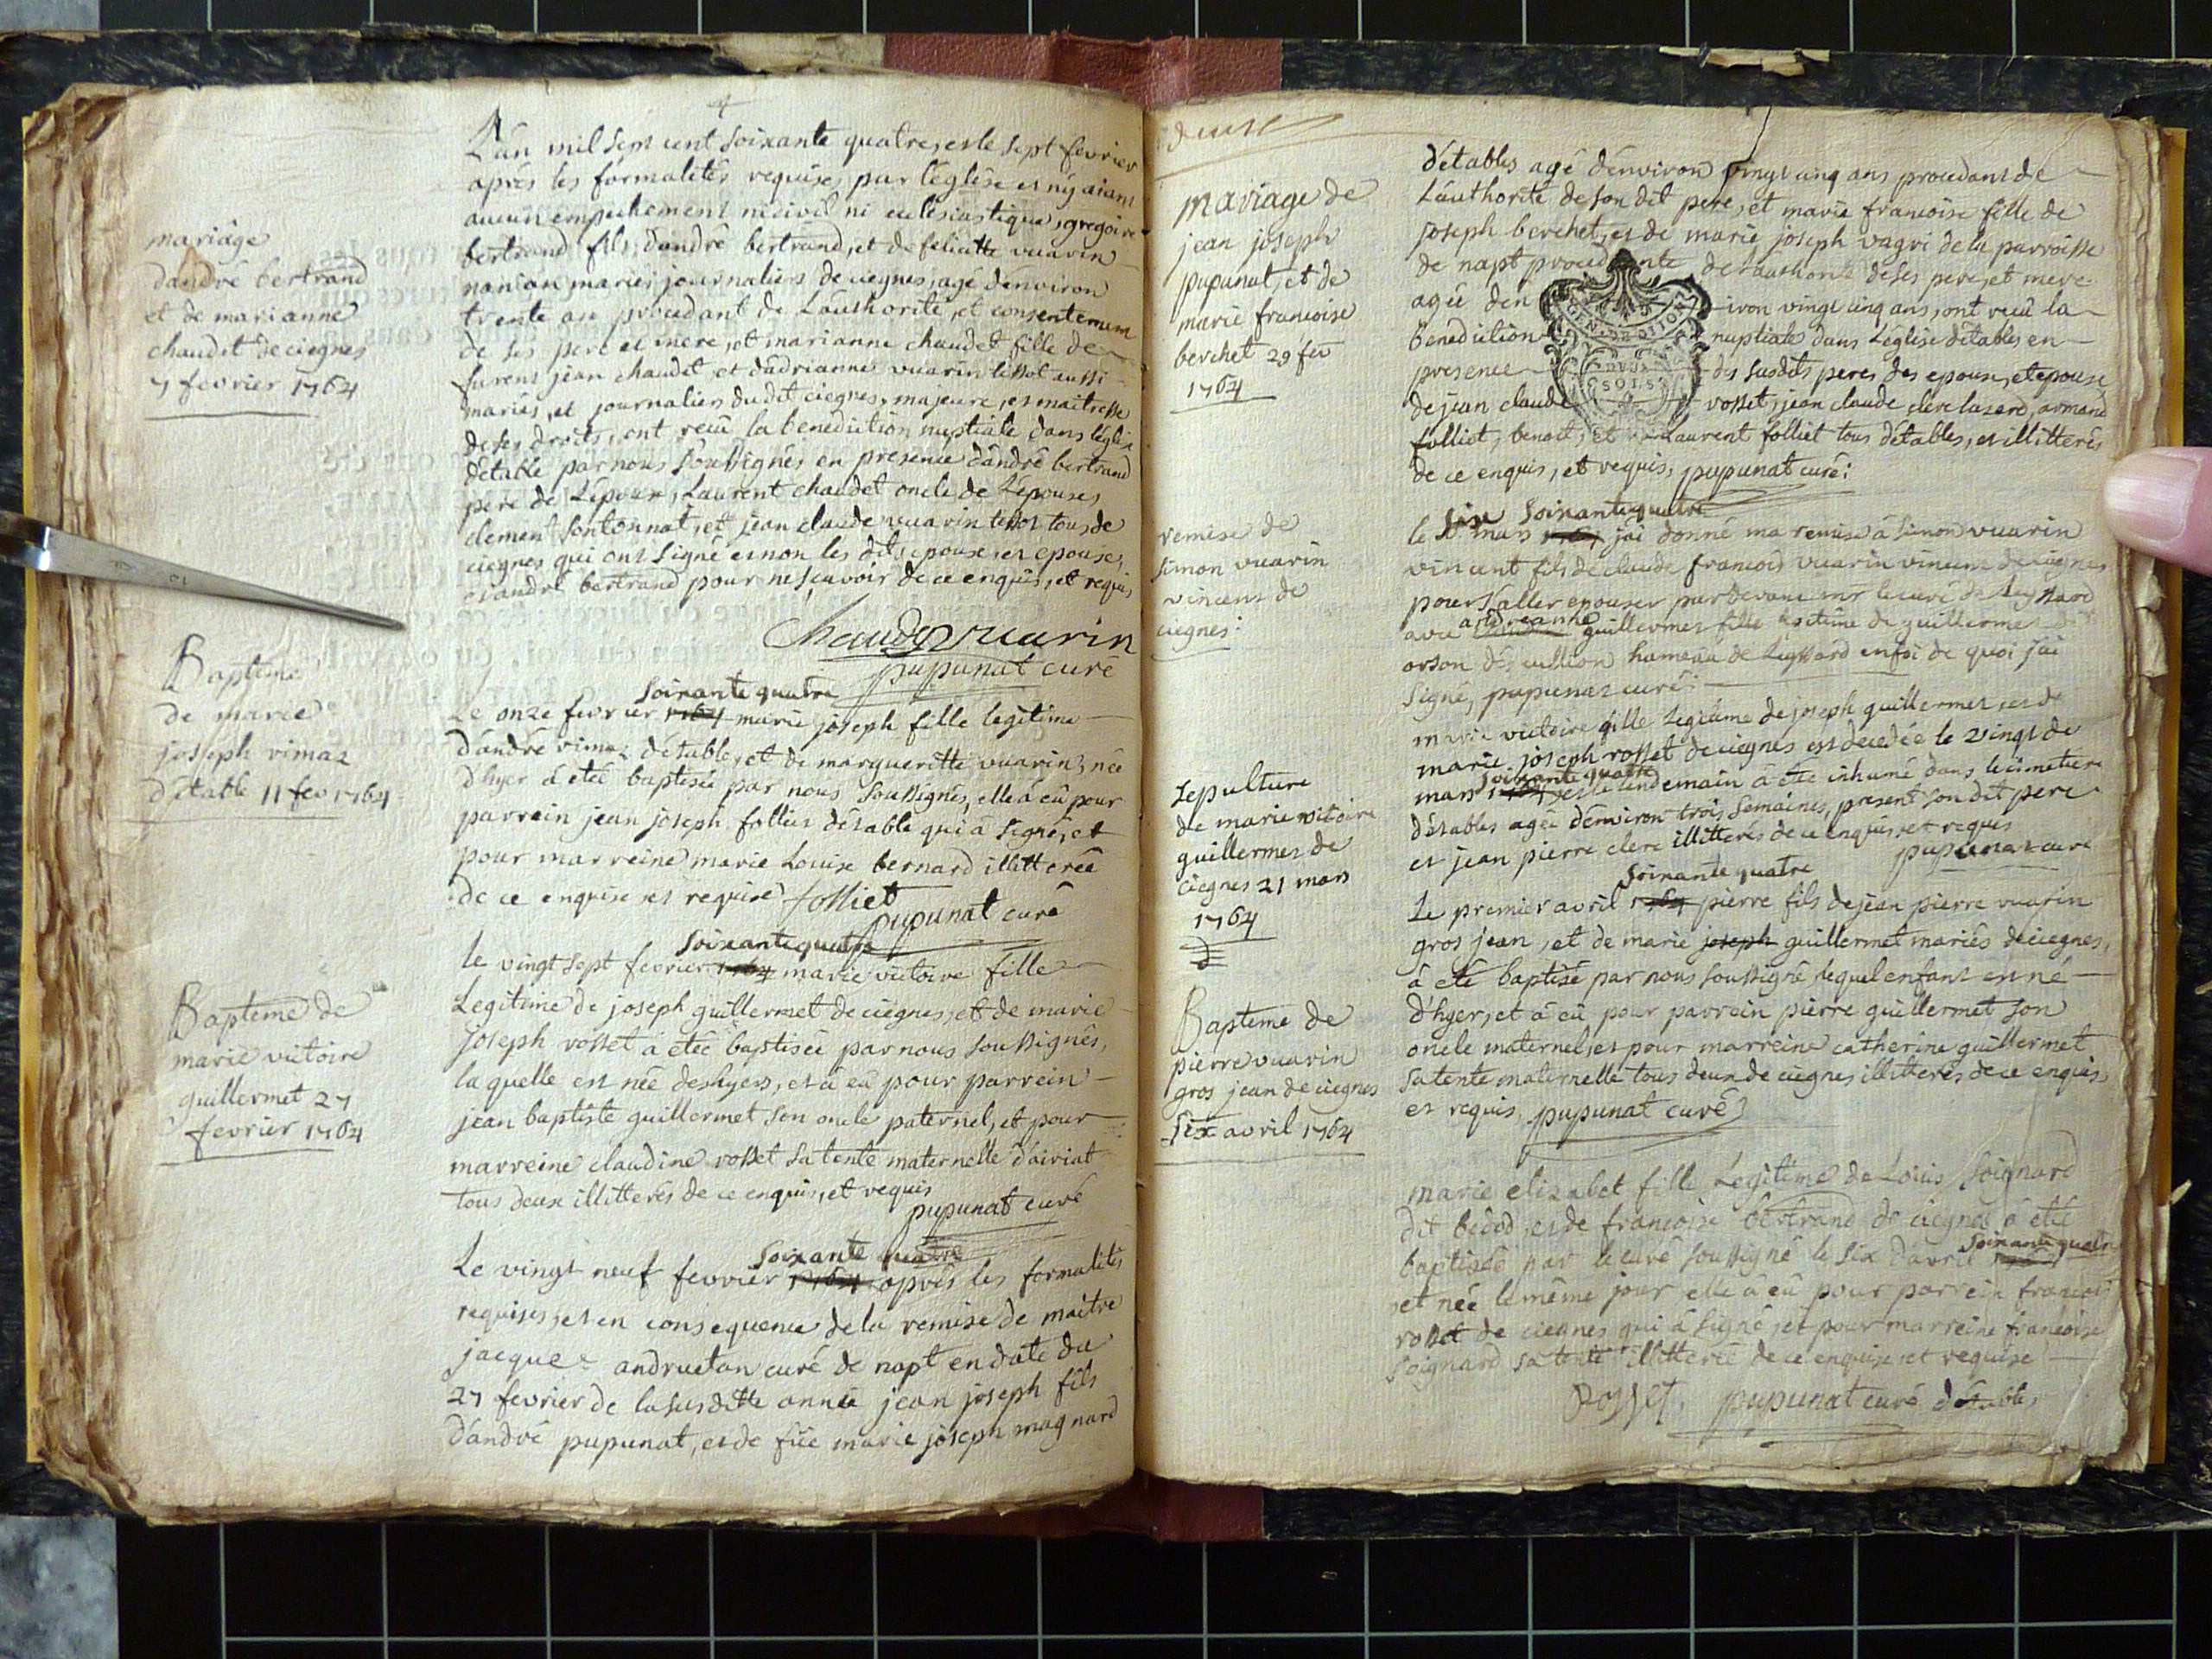 mariage
dandré bertrand
et de marianne
chaudet de ciegnes
7 fevrier 1764
L'an mil sept cent soixante quatre, et le sept fevrier
après les formalités requises par l'église et n'y aiant
aucun empechement ni civil ni eclesiastique, gregoire
bertrand fils d'andré bertrand, et de feliatte vuarin
mariés journaliers de ciegnes, agé d'environ
trente ans procedant de L'authorité, et consentement
de ses pere et mere, et marianne chaudet fille de
furent jean chaudet et d'adrianne vuarin tissot aussi
mariés, et journaliers du dit ciegnes, majeure, et maitresse
de ses droits, ont recû la benediction nuptiale dans l'église
détable par nous soussignés en presence d'andré bertrand
pere de L'époux, Laurent chaudet oncle de L'épouse,
clement sontonnat, et jean claude vuarin tissot tous de
ciegnes qui ont signé et non les dits epoux, et epouse,
et andré bertrand pour ne sçavoir de ce enquis, et requis
Chaudet vuarin
pupunat curé
Bapteme
de marie
joseph vimaz
détable 11 fev 1764
soixante quatre
Le onze fevrier 1764 marie joseph fille legitime
d'andré vimaz détable, et de margueritte vuarin, née
d'hyer à eteé baptisée par nous soussignés, elle à eû pour
parrein jean joseph folliet détable qui à signé, et
pour marreine marie Louise bernard illitterée
de ce enquise et requise folliet
pupunat curé
Bapteme de
marie victoire
guillermet 27
fevrier 1764
soixante quatre
le vingt sept fevrier 1764 marie victoire fille
Legitime de joseph guillermet de ciegnes, et de marie
joseph rosset à eteé baptisée par nous soussignés,
la quelle est née deshyers, et à eû pour parrein
jean baptiste guillermet son oncle paternel, et pour
marreine claudine rosset sa tente maternelle d'airiat
tous deux illitterés de ce enquis, et requis
pupunat curé
soixante quatre
Le vingt neuf fevrier 1764 après les formalités
requises, et en consequence de la remise de maitre
jacque andruetan curé de napt en date du
27 fevrier de la susditte année jean joseph fils
d'andré pupunat, et de füe marie joseph magnard
deuse
mariage de
jean joseph
pupunat, et de
marie francoise
berchet 29 fev
1764
détables agé d'environ vingt cinq ans procedant de
L'authorité de son dit pere, et marie francoise fille de
joseph berchet, et de marie joseph vagri de la parroisse
de napt procedante de l'authorité de ses pere, et mere
agée den iron vingt cinq ans, ont recû la
benediction nuptiale dans L'église détables en
presence des susdits peres des epoux, et epouse
de jean claude rosset, jean claude clerc lazard, armand
folliet, benoit, et Laurent folliet tous détables, et illitterés
de ce enquis, et requis, pupunat curé
remise de
simon vuarin
vincent de
ciegnes
six soixante quatre
le mars 1764 j'ai donné ma remise à simon vuarin
vincent fils de claude francois vuarin vincent de ciegnes
pour s'aller epouser par devant mr le curé de Leyssard
andreanne
avec guillermet fille legitime de guillermet dit
orson de hameau de Leyssard en foi de quoi j'ai
signé, pupunat curé
sepulture
de marie victoire
guillermet de
ciegnes 21 mars
1764
marie victoire fille Legitime de joseph guillermet, et de
marie joseph rosset de ciegnes est decedée le vingt de
soixante quatre
mars 1764, et le lendemain à eté inhumé dans le cimetiere
détables agée d'environ trois semaines, present son dit pere
et jean pierre clerc illitterés de ce enquis, et requis
pupunat curé
Bapteme de
pierre vuarin
gros jean de ciegnes
six avril 1764
soixante quatre
Le premier avril 1764 pierre fils de jean pierre vuarin
gros jean, et de marie joseph guillermet mariés de ciegnes,
à eté baptisé par nous soussigné, lequel enfant est né
d'hyer, et à eû pour parrein pierre guillermet son
oncle maternel, et pour marreine catherine guillermet
sa tente maternelle tous deux de ciegnes illitterés de ce enquis,
et requis, pupunat curé
marie elizabet fille Legitime de Loüis Soignard
dit bedod, et de francoise bertrand de ciegnes à eté
soixante quatre
baptisée par le curé soussigné le six d'avril 1764
et née le même jour elle à eû pour parrein francois
rosset de ciegnes qui à signé, et pour marreine francoise
soignard sa tente illitterée de ce enquise, et requise
Rosset, pupunat curé détables